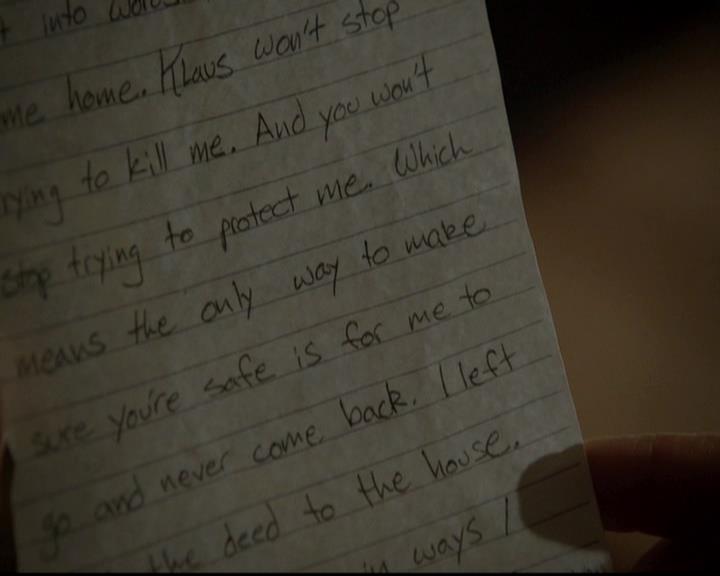 t into words.
me home. Klaus won't stop
rying to kill me. And you won't
stop trying to protect me. Which
means the only way to make
sure you're safe is for me to
go and never come back. I left
the deed to the house.
in ways I